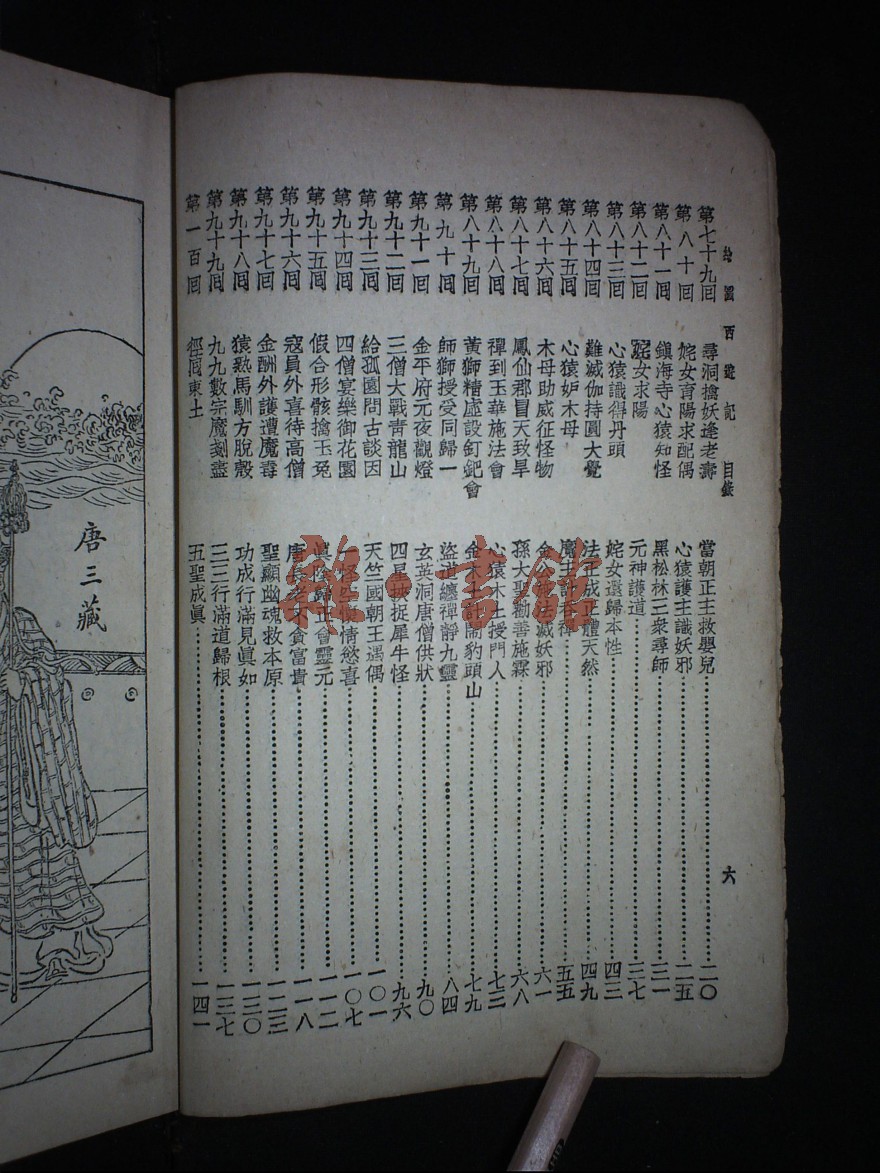 繪圖西遊記 目錄 六
第七十九回 尋洞擒妖逢老壽 當朝正主救嬰兒 二〇
第八十回 姹女育陽求配偶 心猿護主識妖邪 二五
第八十一回 鎮海寺心猿知怪 黑松林三衆尋師 三一
第八十二回 姹女求陽 元神護道 三七
第八十三回 心猿識得丹頭 姹女還歸本性 四三
第八十四回 難滅伽持圓大覺 法王成正體天然 四九
第八十五回 心猿妒木母 魔主計吞禪 五五
第八十六回 木母助威征怪物 金公施法滅妖邪 六一
第八十七回 鳳仙郡冒天致旱 孫大聖勸善施霖 六八
第八十八回 禪到玉華施法會 心猿木土授門人 七三
第八十九回 黃獅精虛設釘鈀會 金木土計鬧豹頭山 七九
第九十回 師獅授受同歸一 盜道纏禪靜九靈 八四
第九十一回 金平府元夜觀燈 玄英洞唐僧供狀 九〇
第九十二回 三僧大戰青龍山 四星挾捉犀牛怪 九六
第九十三回 給孤園問古談因 天竺國朝王遇偶 一〇一
第九十四回 四僧宴樂御花園 一怪空懷情慾喜 一〇七
第九十五回 假合形骸擒玉兔 眞陰歸正會靈元 一一二
第九十六回 寇員外喜待高僧 唐長老不貪富貴 一一八
第九十七回 金酬外護遭魔毒 聖顯幽魂救本原 一二三
第九十八回 猿熟馬馴方脫殼 功成行滿見眞如 一三〇
第九十九回 九九數完魔剗盡 三三行滿道歸根 一三七
第一百回 徑囘東土 五聖成眞 一四一
唐三藏
雜·書館